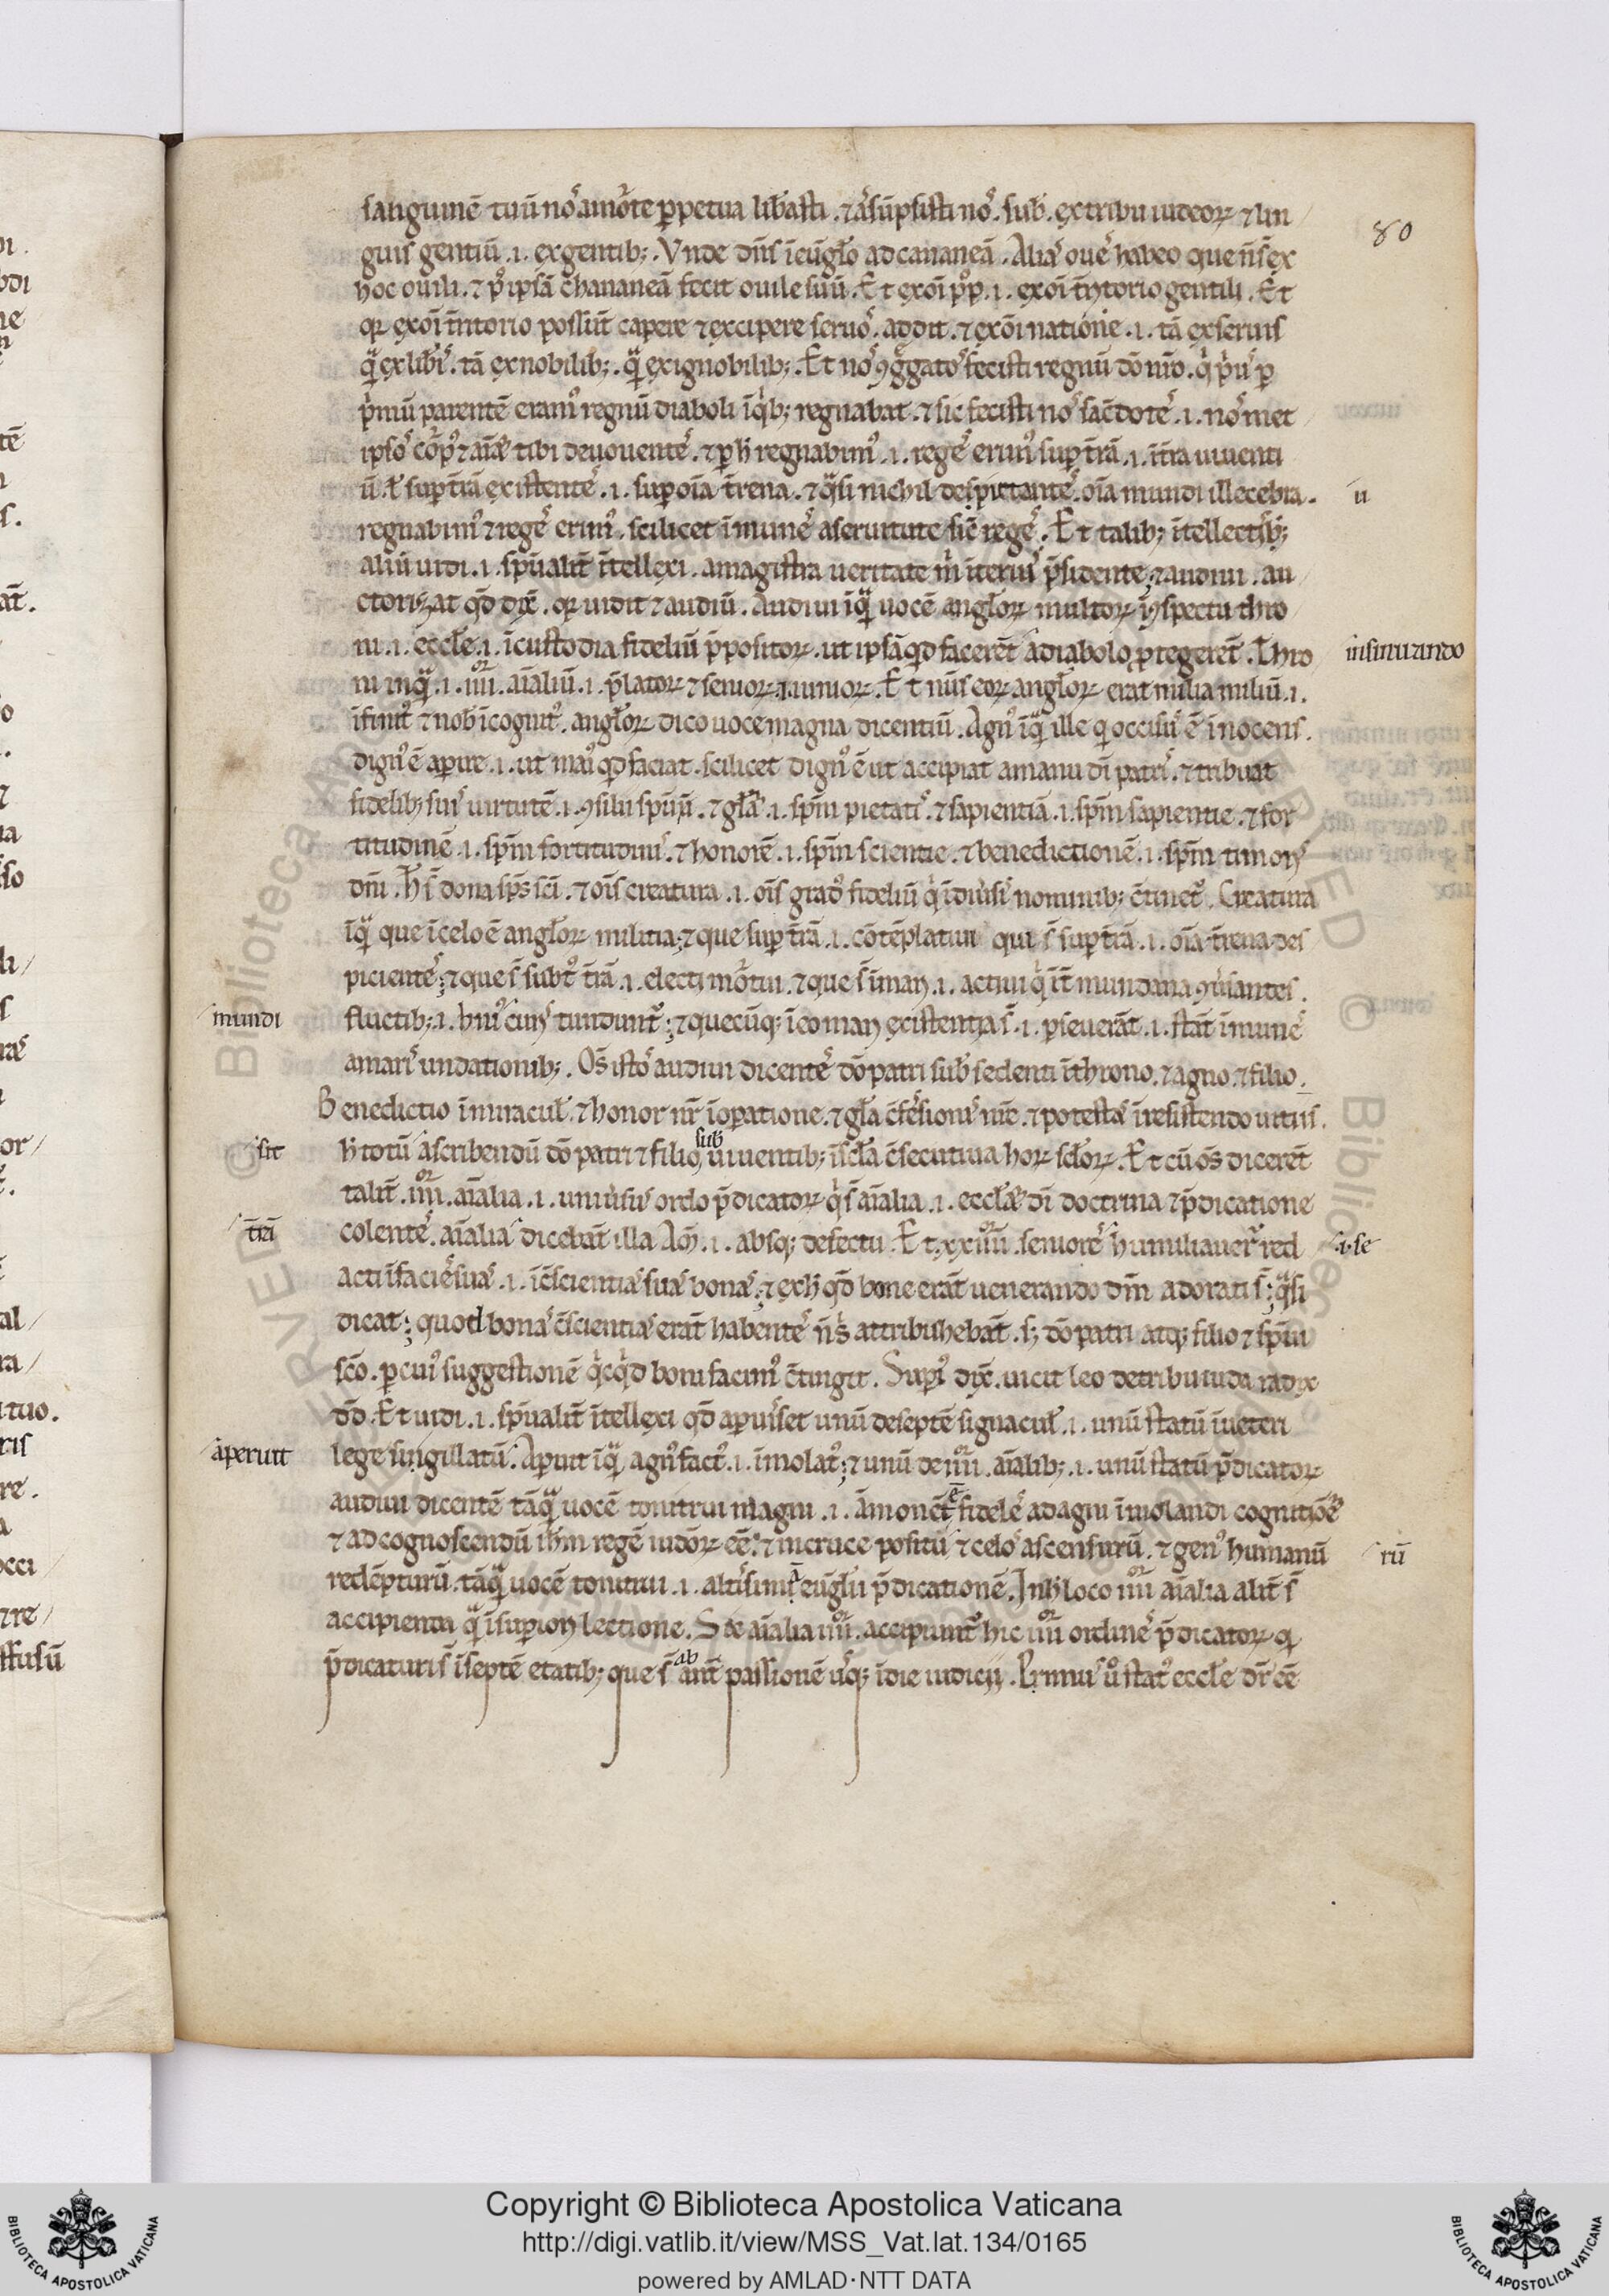 80
sanguinē tuū nos̄ a morte ꝑpetua lib̄asti . ⁊ as̄ūpsisti nos̄ . sub . ex tribu iudeoꝝ ⁊ lin
guis gentiū .i. ex gentib; . Vnde dn̄s ī euḡlo ad cananeā . Alias̄ oues̄ habeo que n̄ s̄ ex
hoc ouili . ⁊ p̄ ipsā chananeā fecit ouile suū . Et ex oī pp̄ .i. ex oī t̄ritorio gentili . Et
qꝛ ex oī t̄ritorio possūt capere ⁊ excipere seruos̄ . addit . ⁊ ex oī natione .i. tā ex seruis
q̄ ex lib̄is . tā ex nobilib; . q̄ ex ignobilib; . Et nos̄ ꝯḡgatos̄ fecisti regnū dō nr̄o . q̄ p̄us ꝑ
p̄mū parentē eramꝰ regnū diaboli ī qͥb; regnabat . ⁊ sic fecisti nos̄ sac̄dotes̄ .i. nos̄ met
ipsos̄ corpꝰ ⁊ aīas̄ tibi deuouentes̄ . ⁊ ꝑ h̄ regnabimꝰ .i. reges̄ erimꝰ suꝑ t̄rā .i. ī t̄ra uiuenti
ū . ł suꝑ t̄rā existentes̄ .i. suꝑ oīa t̄rena . ⁊ q̄si nichil despictantes̄ oīa mundi illecebra .
u
regnabimꝰ ⁊ reges̄ erimꝰ . scilicet īmunes̄ a seruitute sic̄ reges̄ . Et talib; ītellectib;
aliū uidi .i. sp̄ualit̄ ītellexi . a magistra ueritate m̄ īterius p̄sidente ; ⁊ audiui . au
ctorizat qd̄ dix̄ . qꝛ uidit ⁊ audiū . Audiui īq̄ uocē angłoꝝ multoꝝ ī ꝯspectu thro
ni .i. eccłe .i. ī custodia fideliū p̄positoꝝ . ut ipsā qd̄ facerēt a diabolo ꝓtegerēt . Thro
insinuando
ni inq̄ .i. iiii . aīaliū .i. p̄latoꝝ ⁊ senioꝝ .i. iunioꝝ . Et nūs eoꝝ angłoꝝ erat milia miliū .i.
īfinitꝰ ⁊ nob̄ īcognitꝰ . angłoꝝ dico uoce magna dicentiū . Agnꝰ īq̄ ille q̄ occisus̄ ē īnocens .
dignꝰ ē aꝑire .i. ut maiꝰ qd̄ faciat . scilicet dignꝰ ē ut accipiat a manu dī patris̄ . ⁊ tribuat
fidelib; suis uirtutē .i. ꝯsilii sp̄m . ⁊ gł̄a .i. sp̄m pietatis̄ . ⁊ sapientiā .i. sp̄m sapientie . ⁊ for
titudinē .i. sp̄m fortitudinis̄ . ⁊ honorē .i. sp̄m scientie . ⁊ benedictionē .i. sp̄m timoris̄
dn̄i . H̄ s̄ dona sp̄s sc̄i . ⁊ oīs creatura .i. oīs gradꝰ fideliū q̄ ī diu̇sis̄ nominib; c̄tinetꝰ . Creatura
īq̄ que ī celo ē angłoꝝ militia ; ⁊ que suꝑ t̄rā .i. cōtēplatiui qui s̄ suꝑ t̄rā .i. oīa t̄rena des
picientes̄ ; ⁊ que s̄ subtꝰ t̄rā .i. electi mortui . ⁊ que s̄ ī mari .i. actiui q̄ īt̄ mundana ꝯu̇santes .
mundi
fluctib; .i. h̄iꝰ cur̄is tundunt̄ ; ⁊ quecūq; ī eo mari existentia s̄ .i. ꝑseuerāt .i. stāt īmunes̄
amaris̄ undationib; . Os̄ istos̄ audiui dicentes̄ dō patri sub sedenti ī throno . ⁊ agno . ⁊ filio .
Benedictio ī miracuł . ⁊ honor nr̄ ī oꝑatione . ⁊ gł̄a c̄fessionis̄ nr̄e . ⁊ potestas̄ ī resistendo uitiis .
sit
sub
h̄ totū ascribendū dō patri ⁊ filio uiuentib; ī scł̄a c̄secutiua hoꝝ scłoꝝ . Et cū os̄ dicerēt
talit̄ . iiii . aīalia .i. uniu̇sus̄ ordo p̄dicatoꝝ q̄ s̄ aīalia .i. eccłas̄ dī doctrina ⁊ p̄dicatione
t̄rā
colentes̄ . aīalia dicebāt illa Am̄ .i. absq; defectu . Et . xxiiii . seniores̄ humiliauer̄ red
.i. se
acti ī facies̄ suas̄ .i. ī c̄scientias̄ suas̄ bonas̄ ; ⁊ ex h̄ qd̄ bone erāt uenerando dm̄ adorati s̄ ; q̄si
dicat ; quod bonas̄ c̄scientias̄ erāt habentes̄ n̄ s̄ attribuhebāt . s; dō patri atq; filio ⁊ sp̄ui
sc̄o . ꝑ cuiꝰ suggestionē qͥcqͥd boni facimꝰ c̄tingit . Supꝰ dix̄ . uicit leo de tribu iuda radix
dd̄ . Et uidi .i. sp̄ualit̄ ītellexi qd̄ aꝑuis̄set unū de septē signacuł .i. unū statū ī ueteri
aperuit
lege singillatū . Aꝑuit īq̄ agnꝰ factꝰ .i. īmolatꝰ ; ⁊ unū de iiii . aīalib; .i. unū statū p̄dicatoꝝ
audiui dicentē tāq̄ uocē tonitrui magni .i. āmonētē fideles̄ ad agni īmolandi cognitionē
⁊ ad cognoscendū ih̄m regē iudōꝝ eē . ⁊ in cruce positū ⁊ celos̄ ascensurū . ⁊ genꝰ humanū
rū
redēpturū . tāq̄ uocē tonitrui .i. altissimā euḡlii p̄dicationē . In h̄ loco iiii aīalia alit̄ s̄
accipienda q̄ ī suꝑiori lectione . Sed aīalia iiii . accipiunt̄ hic iiii ordines̄ p̄dicatoꝝ q̄
ab
p̄dicaturi s̄ ī septē etatib; que s̄ ant̄ passionē usq; ī die iudicij . Primus u̇ statꝰ eccłe dr̄ eē
Copyright © Biblioteca Apostolica Vaticana
http://digi.vatlib.it/view/MSS_Vat.lat.134/0165
powered by AMLAD·NTT DATA